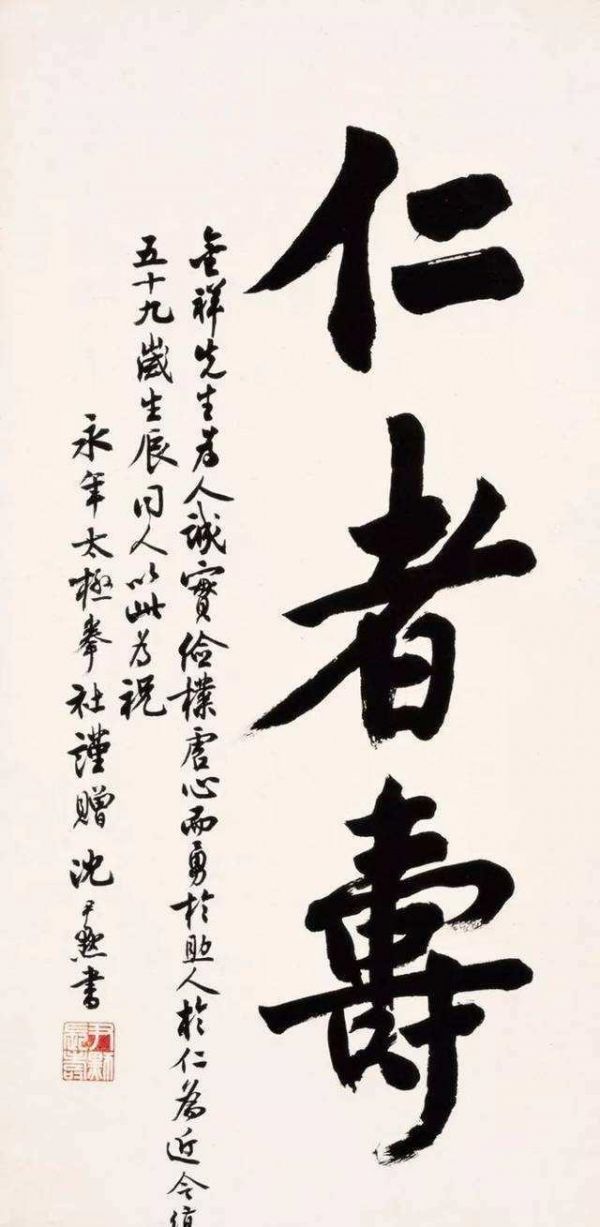 仁者壽
金祥先生為人誠實儉樸虛心而勇於助人於仁為近今值
五十九歲生辰同人以此為祝
永年太極拳社謹贈 沈尹默書
尹默
長壽